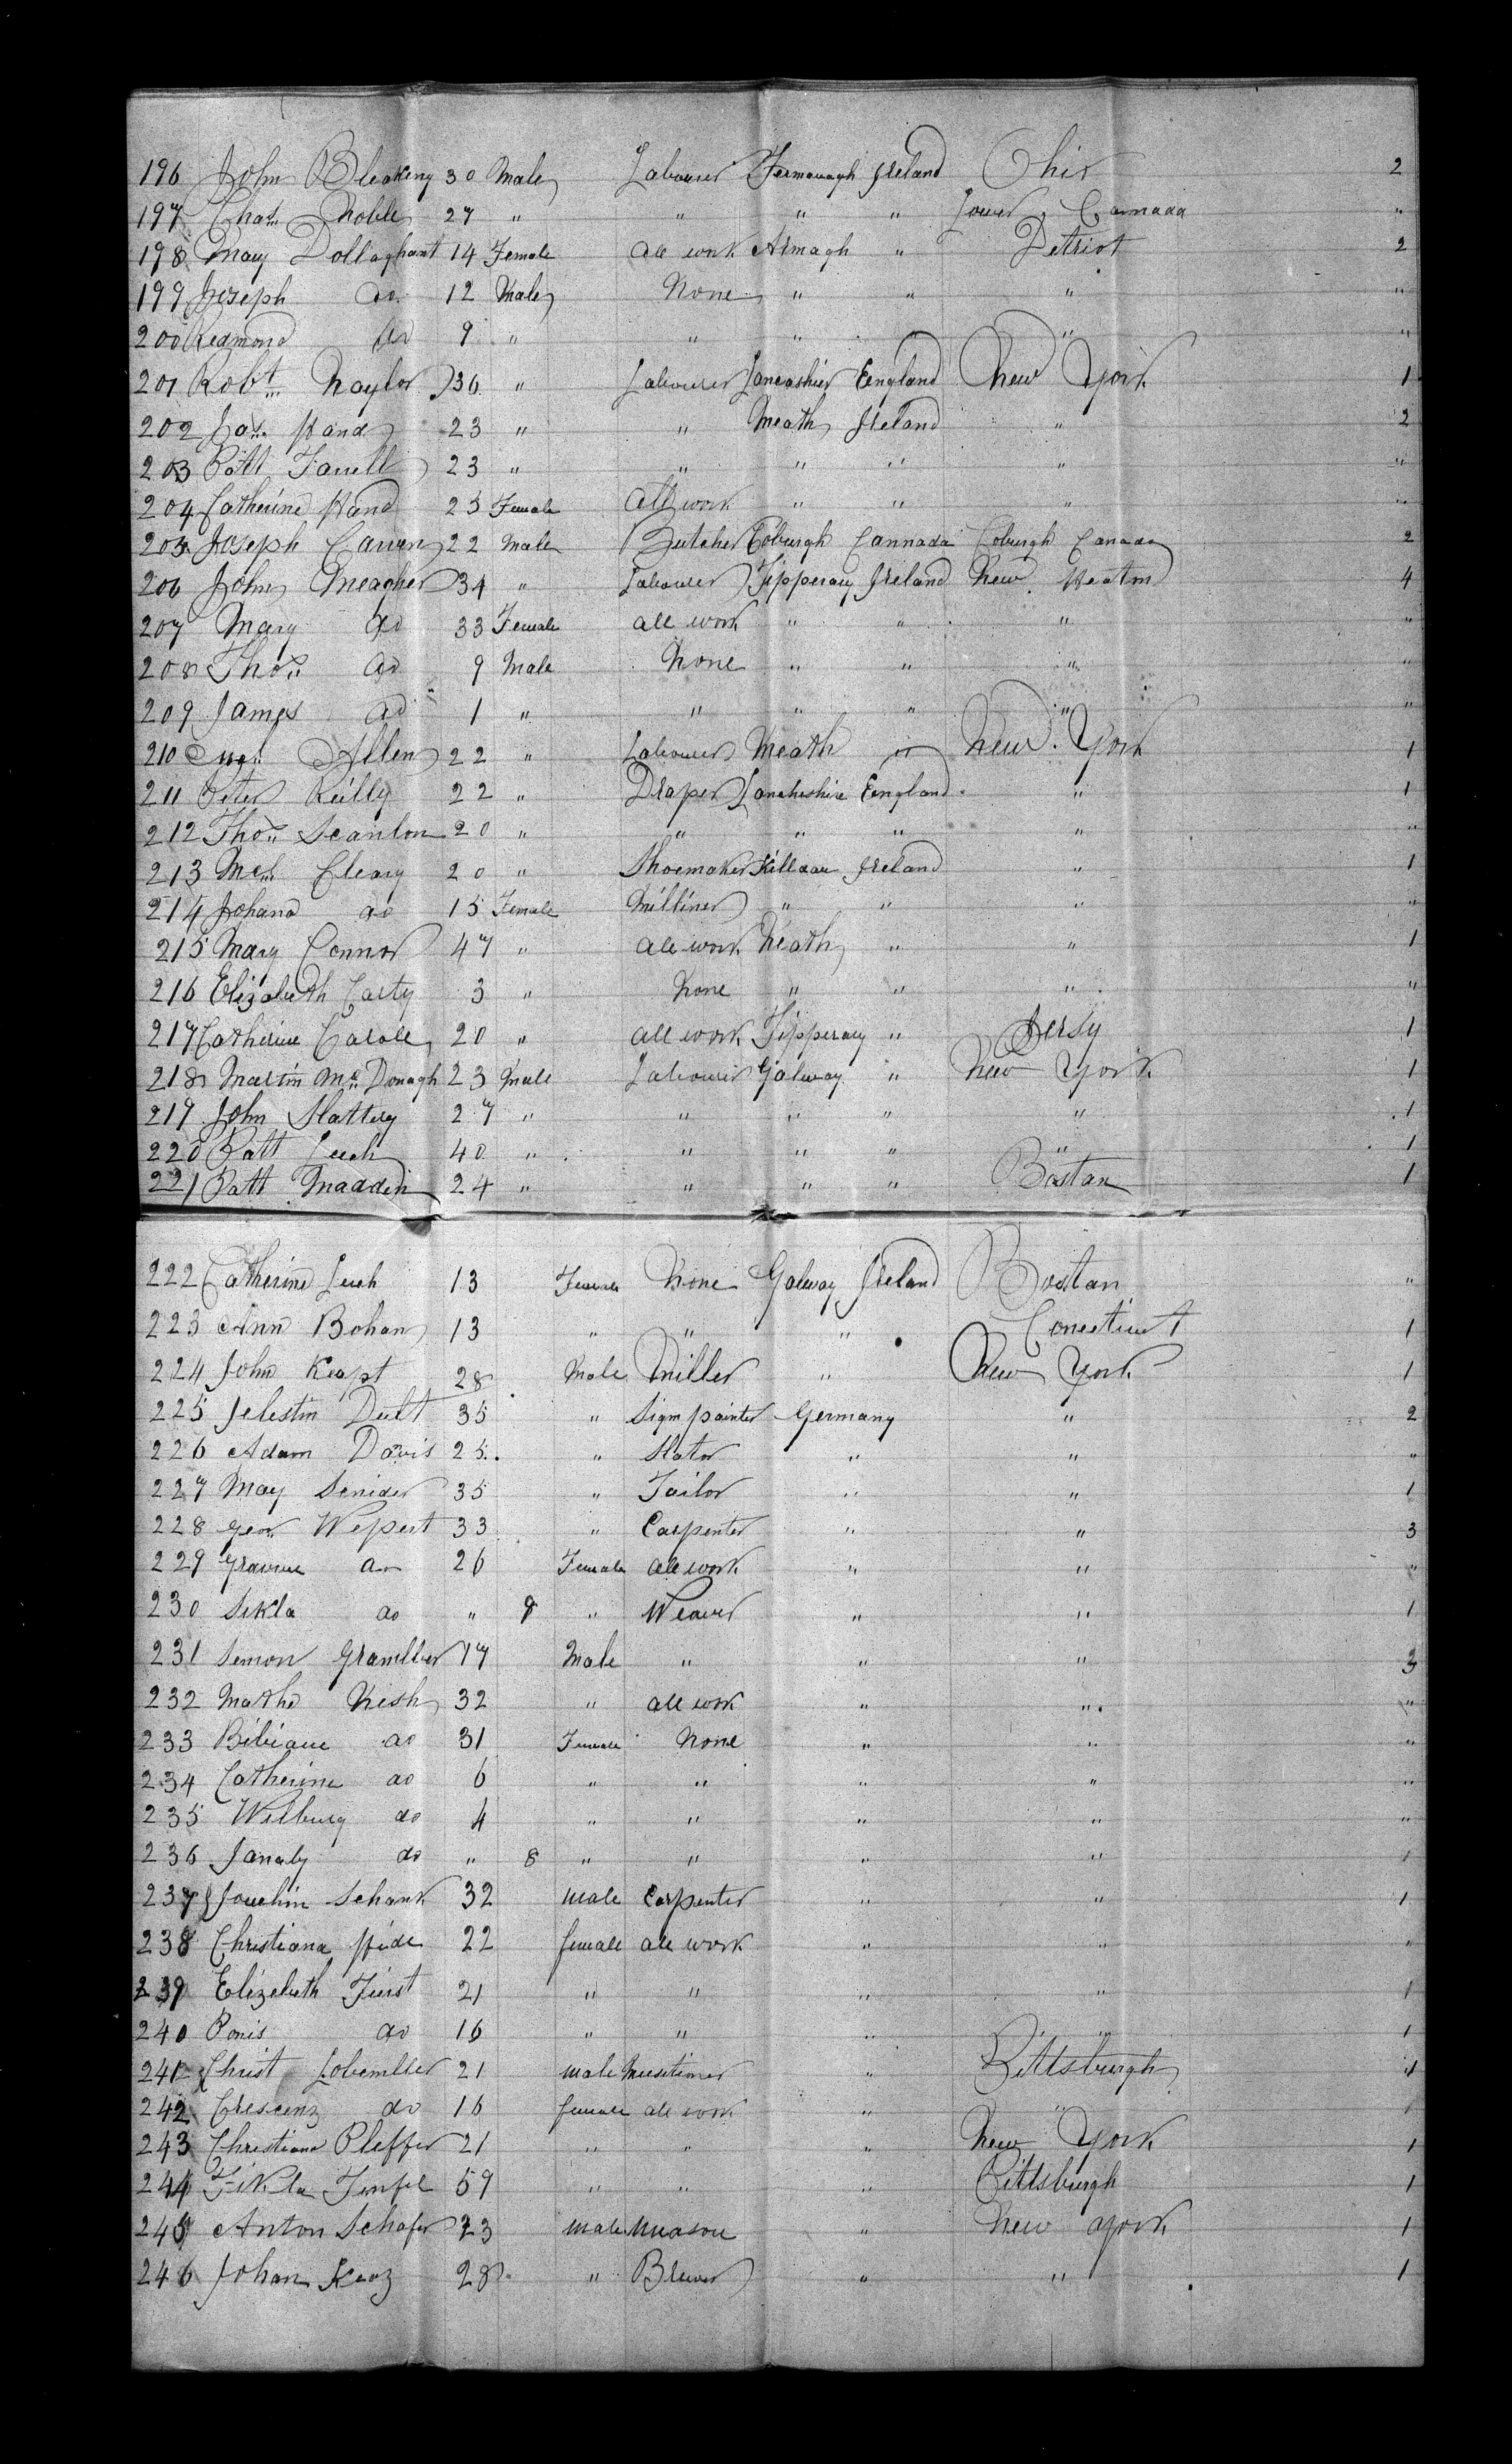 196 John Bleakeny 30 Male Labourer Fermanagh Ireland Ohio 2
197 Chas. Noble 27 " " " " Lower Cannada "
198 Mary Dollaghant 14 Female all work Armagh " Detriot 2
199 Joseph do 12 Male None " " " "
200 Redmond do 9 " " " " "
201 Robt. Naylor 36 " Labourer Lancashier Eengland New York 1
202 Jas. Hand 23 " " Meath Ireland " 2
203 Patt Farrell 23 " " " " " "
204 Catherine Hand 25 Female all work " " " "
205 Joseph Carren 22 Male Butcher Coburgh Cannada Coburgh Canada 2
206 John Meagher 34 " Labourer Tipperary Ireland New 4
207 Mary do 33 Female all work " " " "
208 Thos. do 9 Male None " " " "
209 James do 1 " " " " " "
210 Allen 22 " Labourer Meath " New York 1
211 Peter Reilly 22 " Draper Lancheshire Eengland " 1
212 Thos. Scanlon 20 " " " " " "
213 Mcl. Cleary 20 " Shoemaker Killdare Ireland " 1
214 Johana do 15 Female Milliner " " " "
215 Mary Connor 47 " all work Meath " " 1
216 Elizabeth Casty 3 " None " " " "
217 Catherine Carole 20 " all work Tipperary " Jersy 1
218 Martin Mc. Donagh 23 Male Labourer Galway " New York 1
219 John Slattery 27 " " " " " 1
220 Patt Leech 40 " " " " " 1
221 Patt Madden 24 " " " " Bostan 1
222 Catherine Leech 13 Female None Galway Ireland Bostan "
223 Ann Bohan 13 " " " Conecticut 1
224 John Kapt 28 Male Miller " New York 1
225 Jelestin Dult 35 " Sign painter Germany " 2
226 Adam Davis 25 " Slator " " "
227 May Senider 35 " Tailor " " 1
228 Geo. Wepert 33 " Carpenter " " 3
229 do 26 Female all work " " "
230 Sekla do " 9 " Weaver " " 1
231 Semon Gramlber 17 Male " " " 3
232 Mathe Nesh 32 " all work " " "
233 Bibiane do 31 Female None " " "
234 Catherine do 6 " " " " "
235 Wilburg do 4 " " " " "
236 Janaly do " 8 " " " " 1
237 Jouchin Schank 32 male Carpenter " " 1
238 Christiana Hide 22 female all work " " "
239 Elizebeth Fuirst 21 " " " " 1
240 Ponis do 16 " " " " 1
241 Christ Lobemller 21 male Musetimer " Pittsburgh 1
242 Crescenz do 16 female all work " " 1
243 Christiana Pleffer 21 " " " New York 1
244 Fikla 59 " " " Pittsburgh 1
245 Anton Schafer 23 male Muason " New York 1
246 Johan Kenz 28 " Brewer " " 1